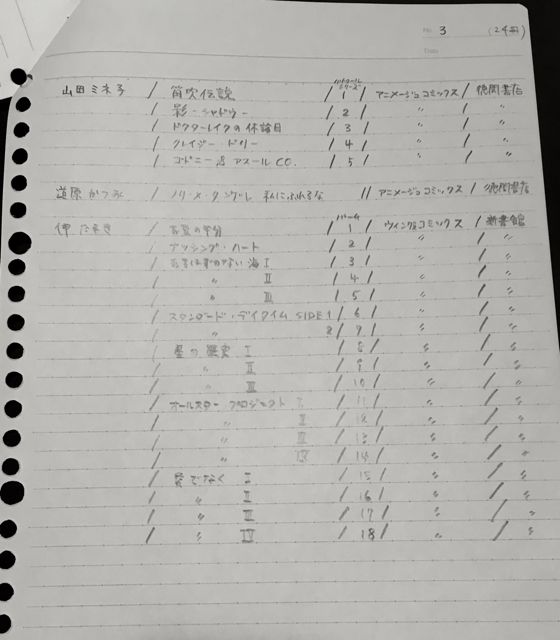 No. 3 (24冊)
Date
山田ミネコ / 笛吹伝説 / パトロールシリーズ 1 / アニメージュコミックス / 徳間書店
/ 影・シャドゥー / 2 / 〃 / 〃
/ ドクターレイクの休診日 / 3 / 〃 / 〃
/ クレイジー・ドリー / 4 / 〃 / 〃
/ アズールCO. / 5 / 〃 / 〃
道原かつみ / ノリ・メ・タンゲレ 私にふれるな // アニメージュコミックス / 徳間書店
伸 たまき / の半分 / パーム 1 / ウィングスコミックス / 新書館
/ ナッシング・ハート / 2 / 〃 / 〃
/ あるはずのない海 I / 3 / 〃 / 〃
/ 〃 II / 4 / 〃 / 〃
/ 〃 III / 5 / 〃 / 〃
/ スタンダード・デイタイム SIDE 1 / 6 / 〃 / 〃
/ 〃 2 / 7 / 〃 / 〃
/ 星の歴史 I / 8 / 〃 / 〃
/ 〃 II / 9 / 〃 / 〃
/ 〃 III / 10 / 〃 / 〃
/ オールスター プロジェクト I / 11 / 〃 / 〃
/ 〃 II / 12 / 〃 / 〃
/ 〃 III / 13 / 〃 / 〃
/ 〃 IV / 14 / 〃 / 〃
/ 愛でなく I / 15 / 〃 / 〃
/ 〃 II / 16 / 〃 / 〃
/ 〃 III / 17 / 〃 / 〃
/ 〃 IV / 18 / 〃 / 〃